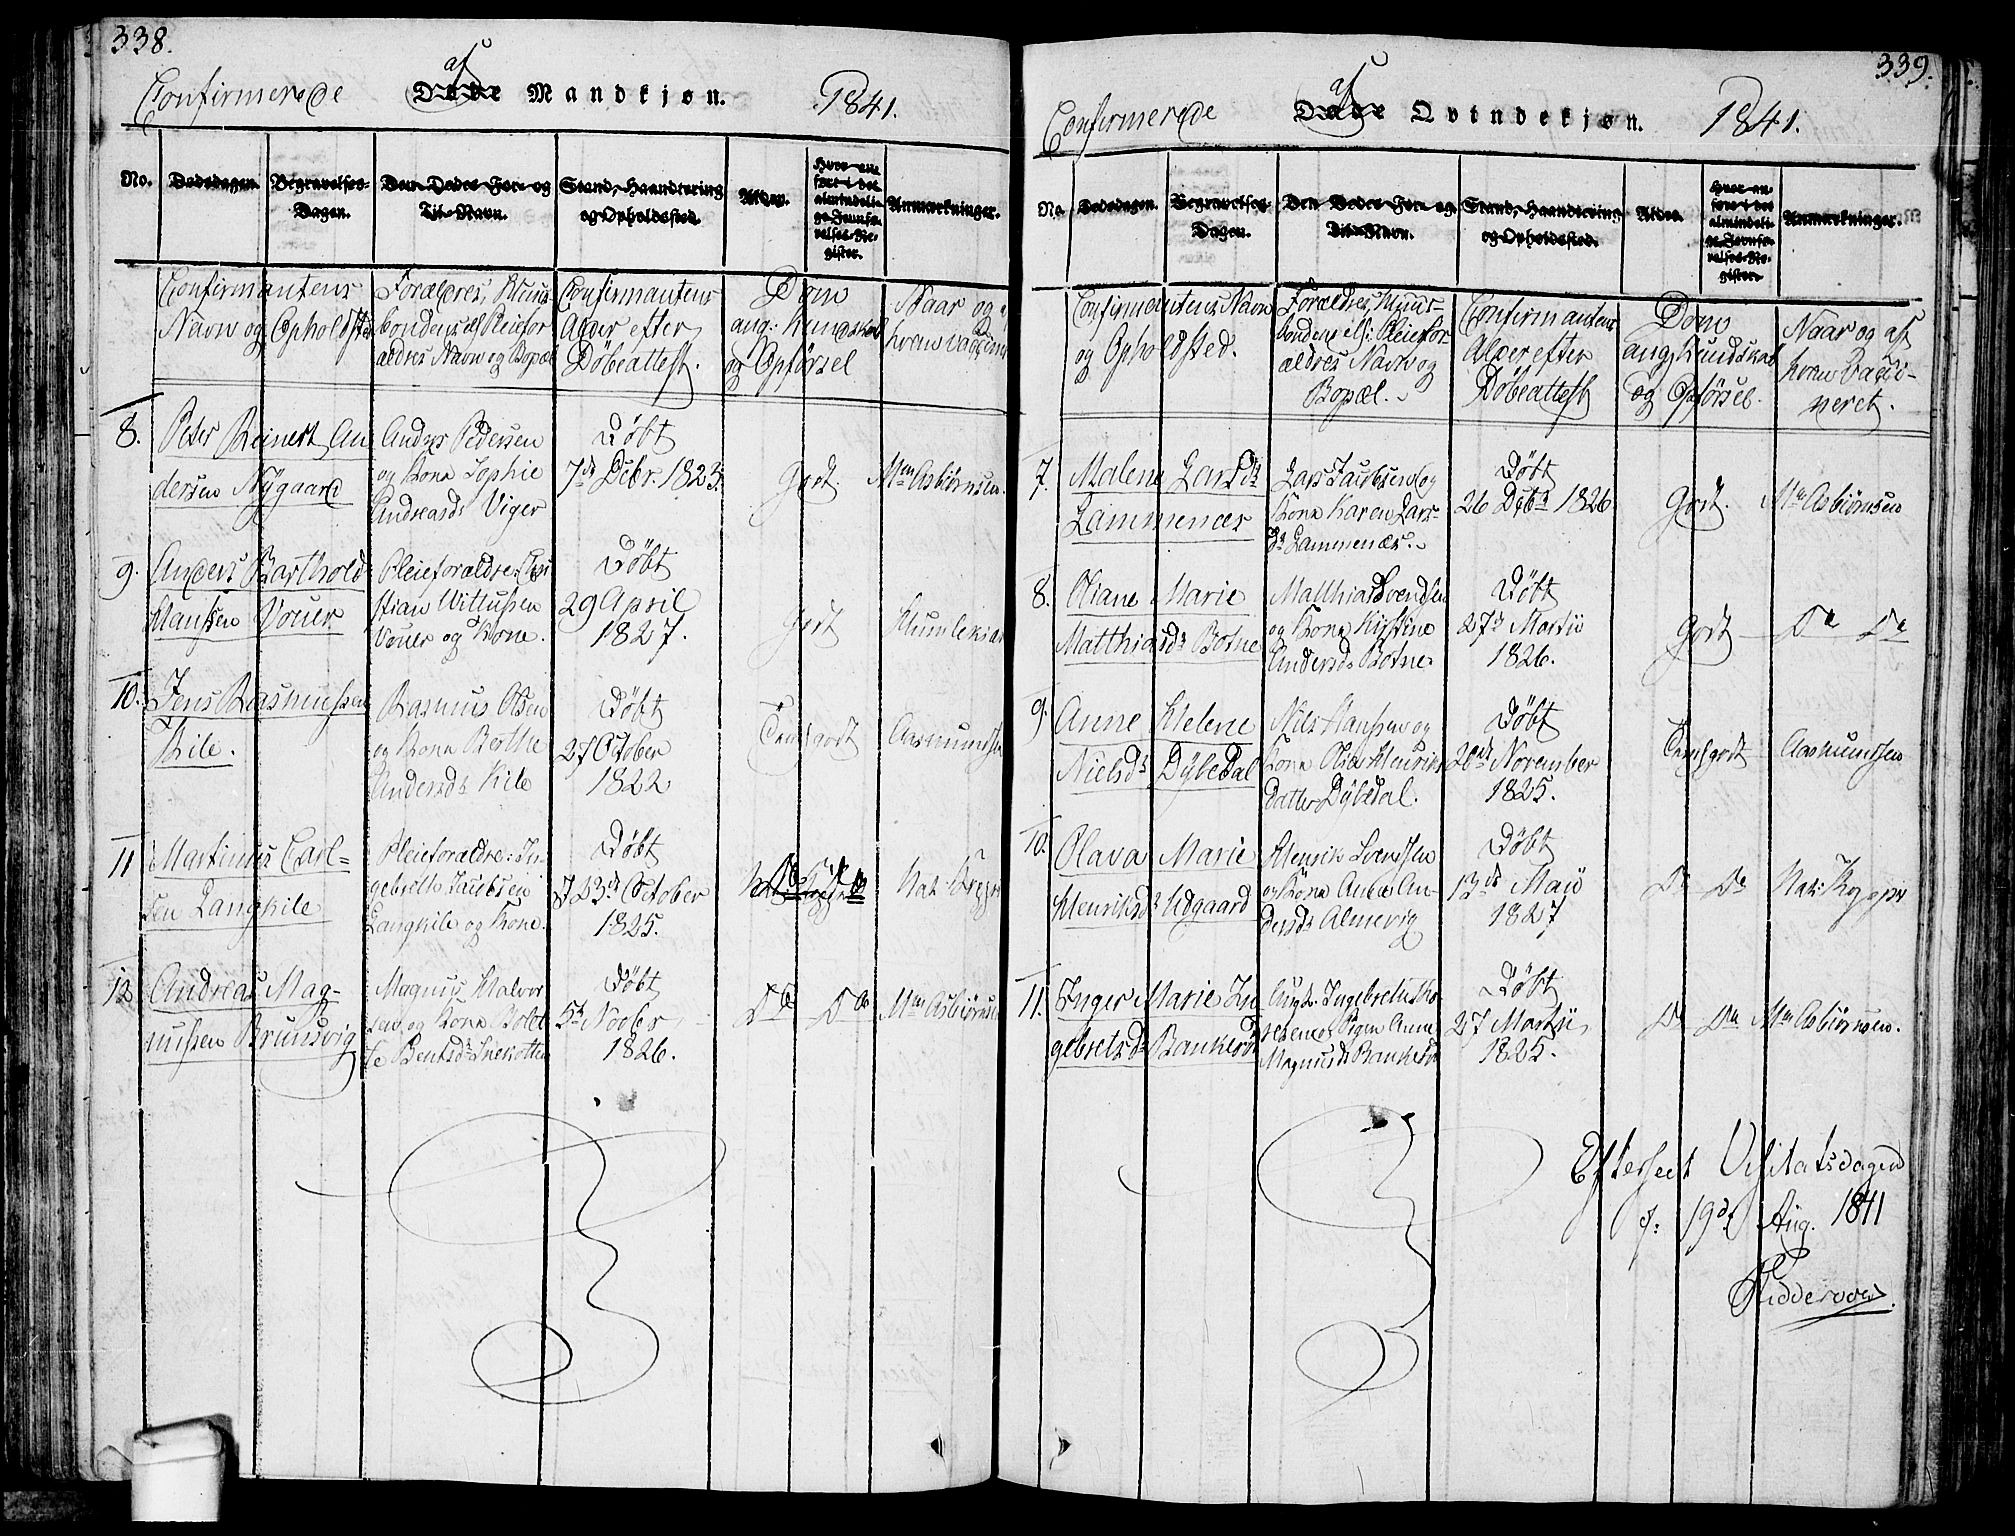 338.
Confirmerede af Døde Mandkjøn. 1841.
No. Dødsdagen. Begravelses-Dagen. Den Dødes For- og Til-Navn. Stand, Haandtering og Opholdssted. Alder. Hvor an-ført i det almindeli-ge Jevnfø-relses-Re-gister. Anmærkninger.
Confirmantens
Navn og Opholdsted
Forældres, Huus-
bondens el Pleiefor
ældres Navn og Bopæl
Confirmantens
Alder efter
Døbeattest.
Dom
ang: Kundskab
og Opførsel
Naar og af
hvem vaccine
8. Peter Reinert An
dersen Nygaard
Anders Pedersen
og Kone Sophie
Andreasd. Viger
Døbt
7de Debr. 1823.
Godt.
Mm Asbiørnsen.
9. Anders Barthold
Hanssen Vouer
Pleieforældre: Chri
stian Wittussen
Vouer og Kone.
Døbt
29 April
1827.
Godt
Humlekiær
10. Jens Rasmussen
Kile.
Rasmus Olsen
og Kone Berthe
Andersd. Kile
Døbt
27 October
1822
Temf godt
Aasmundsen
11 Martinus Carl-
sen Langkile
Pleieforældre: In-
gebrett Jacobsen
Langkile og Kone.
Døbt
d 23de October
1825.
Do Do
Nat: Krøger
12 Andreas Mag-
nussen Brunsvig
Magnus Halvor
sen og Kone Bolet
te Bentsd: Snekotten
Døbt
5te Novbr
1826.
Do Do
Mm Asbiørnsen
339.
Confirmerede af Døde Qvindekjøn. 1841.
No. Dødsdagen. Begravelses-Dagen. Den Dødes For- og Til-Navn. Stand, Haandtering og Opholdssted. Alder. Hvor an-ført i det almindeli-ge Jevnfø-relses-Re-gister. Anmærkninger.
Confirmantens Navn
og Opholdsted.
Forældres, Huus-
bondens els: Pleiefor
ældres Navn og
Bopæl.
Confirmantens
Alder efter
Døbeattest
Dom
ang. Kundskab
og Opførsel.
Naar og af
hvem vacci-
neret.
7. Malene Larsdr
Lammenæs
Lars Jacobsen og
Kone Karen Lars-
dr Lammenæs.
Døbt
26 Debr 1826
Godt.
Mm Asbiørnsen
8. Oliane Marie
Matthiasdr Botne
Matthias Svendsen
og Kone Kirstine
Andersd. Botne
Døbt
27de Martii
1826.
Godt
Do Do
9. Anne Helene
Nielsdr Dybedal
Nils Hanssen og
Kone Olea Henriks
datter Dybedal.
Døbt
20de November
1825.
Temf godt
Aasmundsen
10. Olava Marie
Henriksdr Udgaard
Henrik Svendsen
og Kone Anne An-
dersdr Almevig
Døbt
13de Maii
1827
Do Do
Nat: Krøger
11. Inger Marie In
gebretsdr Bankerød
Ungk. Ingebret
og Pigen Anne
Magnusdr Bankerød
Døbt
27 Martii
1825.
Do Do
Mm Asbiørnsen.
Efterseet Visitatsdagen
d: 19de Aug. 1841
Riddervold.